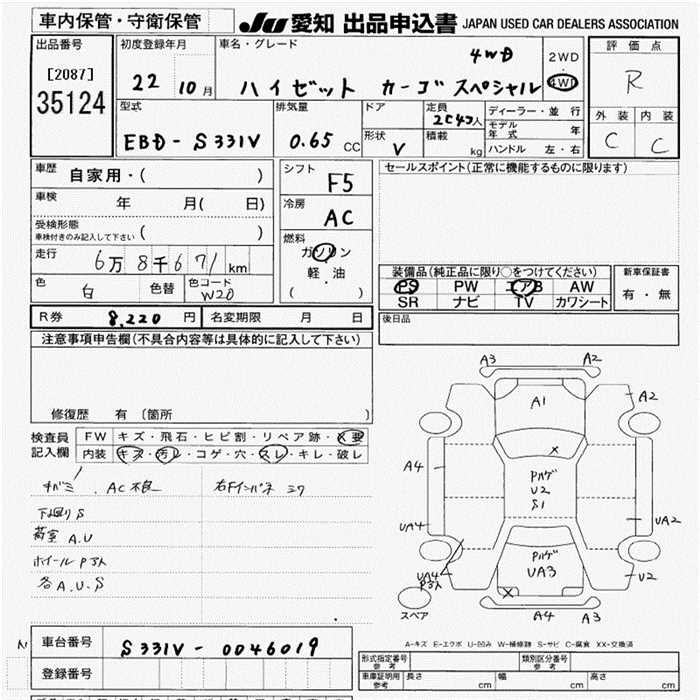 車内保管・守衛保管
JU 愛知 出品申込書 JAPAN USED CAR DEALERS ASSOCIATION
出品番号
[2087]
35124
初度登録年月
22 10月
車名・グレード
4WD
ハイゼット カーゴ スペシャル
2WD
・
4WD
評価点
R
外装 内装
C C
型式
EBD-S331V
排気量
0.65 CC
ドア
形状 V
定員
2(4)人
積載 kg
ディーラー・並行
モデル年式 年
ハンドル 左・右
車歴 自家用・( )
車検 年 月( 日)
受検形態
車検付きのみ記入して下さい ( )
走行 6万8千671km
色 白 色替 色コード W20
シフト F5
冷房 AC
燃料
ガソリン
軽・油
( )
セールスポイント(正常に機能するものに限ります)
装備品(純正品に限り○をつけてください)
PS PW エアB AW
SR ナビ TV カワシート
新車保証書
有・無
R券 8,220円 名変期限 月 日
後日品
注意事項申告欄(不具合内容等は具体的に記入して下さい)
修復歴 有 (箇所 )
検査員
記入欄
FW キズ・飛石・ヒビ割・リペア跡・X要
内装 キズ・汚レ・コゲ・穴・スレ・キレ・破レ
AC不良
下廻りS
荷室 A.U
ホイールPスレ
各A.U.S
A3 A2
A1
A2
A4
X
Pハゲ
U2
S1
UA4
UA2
Pハゲ
UA3
UA4
U2
X
スペア
A4 A3
A-キズ E-エクボ U-凹み W-補修跡 S-サビ C-腐食 XX-交換済
車台番号 S331V-0046019
登録番号
形式指定番号
参考
類別区分番号
参考
車庫証明用
参考
長さ cm 幅 cm 高さ cm